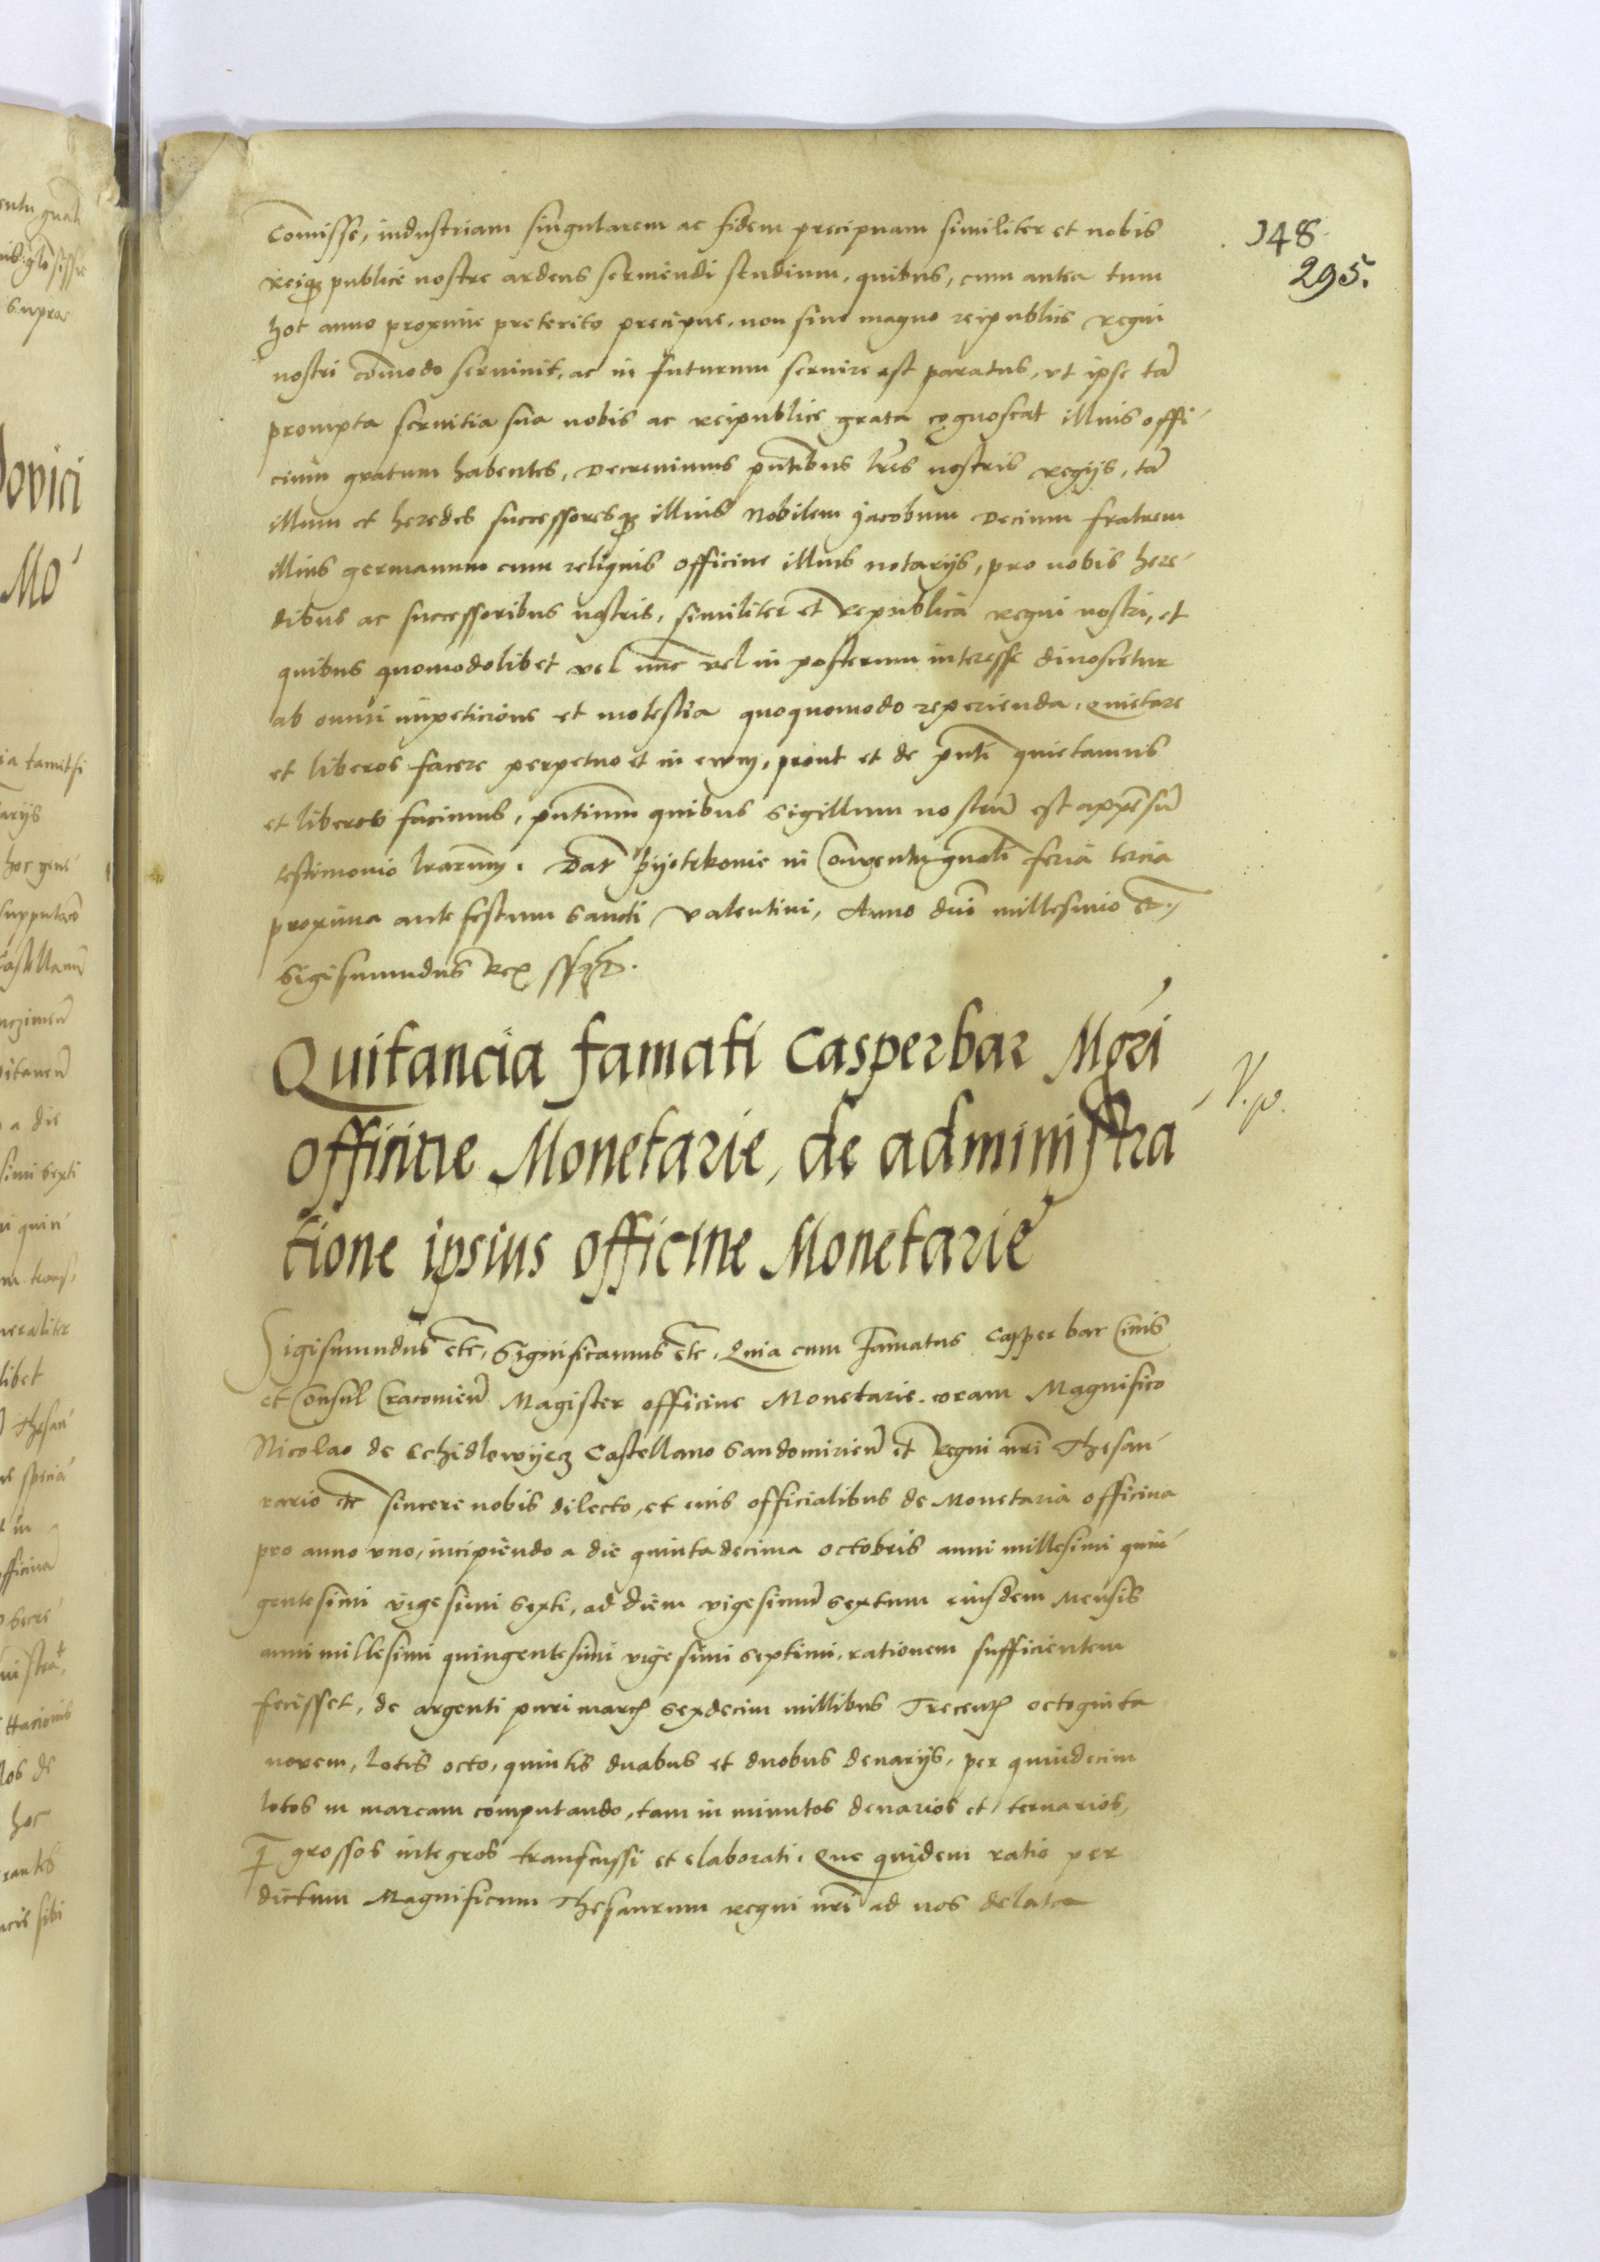 148
295.
Comisse, industriam singularem ac fidem precipuam similiter et nobis
reiqȝ publice nostre ardens serviendi studium, quibus, cum antea tum
hoc anno proxime preterito precipue, non sine magno reipublice regni
nostri comodo servivit, ac in futurum servire est paratus, ut ipse tā
prompta servitia sua nobis ac reipublice grata cognoscat illius offi-
cium gratum habentes, Decrevimus pntibus lrīs nostris regijs, tā
illum et heredes successoresqȝ illius Nobilem Jacobum Decium fratrem
illius germanum cum reliquis officine illius notarijs, pro nobis here-
dibus ac successoribus nostris, similiter et republica regni nostri, et
quibus quomodolibet vel nūc vel in posterum interesse dinoscetur
ab omni impeticione et molestia quoquomodo reperienda, quietare
et liberos facere perpetuo et in evum, prout et de pnti quietamus
et liberos facimus, pntium quibus sigillum nostrū est appensū
testimonio lrarum. Dat Pyotrkovie in Conventu gnali feria tercia
proxima ante festum Sancti Valentini, Anno dni millesimo etc
Sigismundus Rex sst
Quitancia famati Casper bar Mgri
officine Monetarie, de administra-
tione ipsius officine Monetarie
V. p.
Sigismundus etc, Significamus etc. Quia cum Famatus Casper bar Civis
et Consul Cracovien Magister officine Monetarie, coram Magnifico
Nicolao de Schidlowyecz Castellano Sandomirien et Regni nri Thesau-
rario etc sincere nobis dilecto, et eius officialibus de Monetaria officina
pro anno uno, incipiendo a die quinta decima octobris anni millesimi quin-
gentesimi vigesimi sexti, ad diem vigesimū sextum eiusdem Mensis
anni millesimi quingentesimi vigesimi septimi, rationem sufficientem
fecisset, de argenti puri march sexdecim millibus Trecent octoginta
novem, lotis octo, quintis duabus et duobus denarijs, per quindecim
lotos in marcam computando, tam in minutos denarios et ternarios,
q grossos integros transcussi et elaborati. Que quidem ratio per
dictum Magnificum Thesaurum regni nri ad nos delata